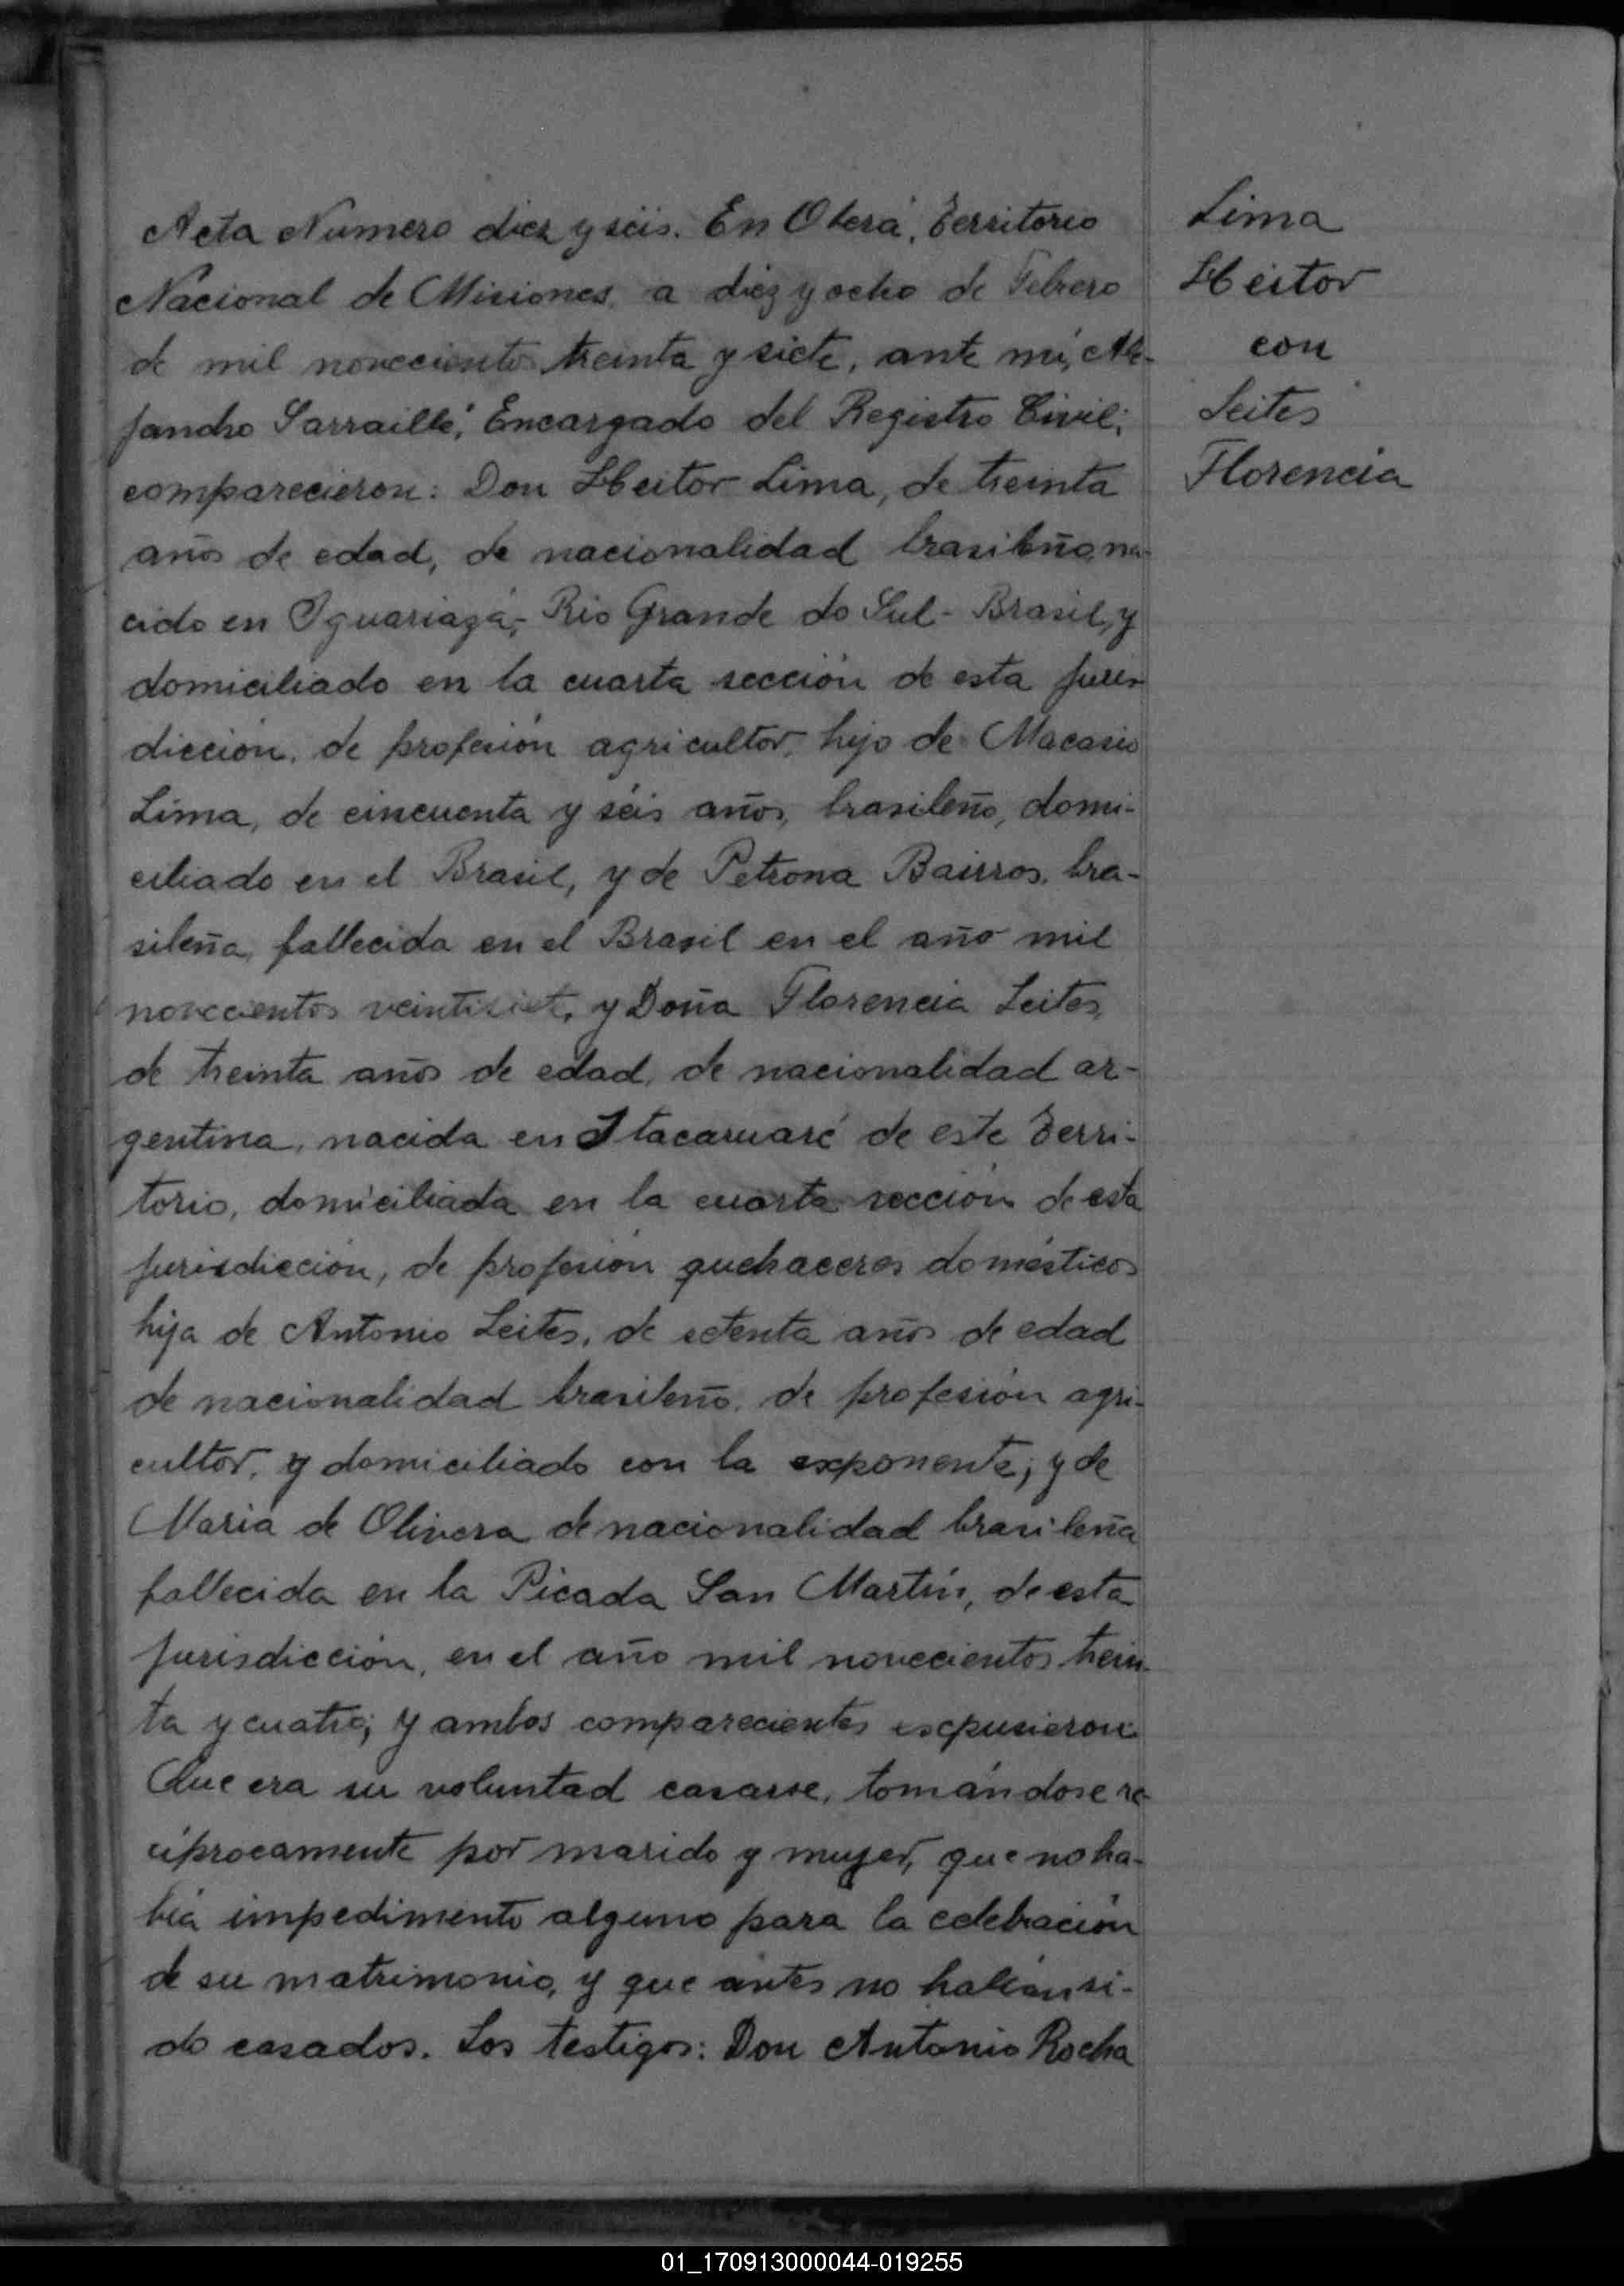 Acta Numero diez y seis. En Oberá, Territorio
Nacional de Misiones, a diez y ocho de Febrero
de mil novecientos treinta y siete, ante mí, Ale-
jandro Sarraillé, Encargado del Registro Civil;
comparecieron: Don Heitor Lima, de treinta
años de edad, de nacionalidad brasileño, na-
cido en Iguariazá,- Rio Grande do Sul - Brasil, y
domiciliado en la cuarta sección de esta juris-
dicción, de profesión agricultor, hijo de Macario
Lima, de cincuenta y séis años, brasileño, domi-
ciliado en el Brasil, y de Petrona Bairros, bra-
sileña, fallecida en el Brasil en el año mil
novecientos veintisiete, y Doña Florencia Leites,
de treinta años de edad, de nacionalidad ar-
gentina, nacida en Itacaruaré de este Terri-
torio, domiciliada en la cuarta sección de esta
jurisdicción, de profesión quehaceres domésticos
hija de Antonio Leites, de setenta años de edad
de nacionalidad brasileño, de profesión agri-
cultor, y domiciliado con la exponente; y de
María de Olivera de nacionalidad brasileña
fallecida en la Picada San Martín, de esta
jurisdicción, en el año mil novecientos trein-
ta y cuatro; y ambos comparecientes expusieron:
Que era su voluntad casarse, tomándose re-
cíprocamente por marido y mujer, que no ha-
bía impedimento alguno para la celebración
de su matrimonio, y que antes no habían si-
do casados. Los testigos: Don Antonio Rocha
Lima
Heitor
con
Leites
Florencia
01_170913000044-019255